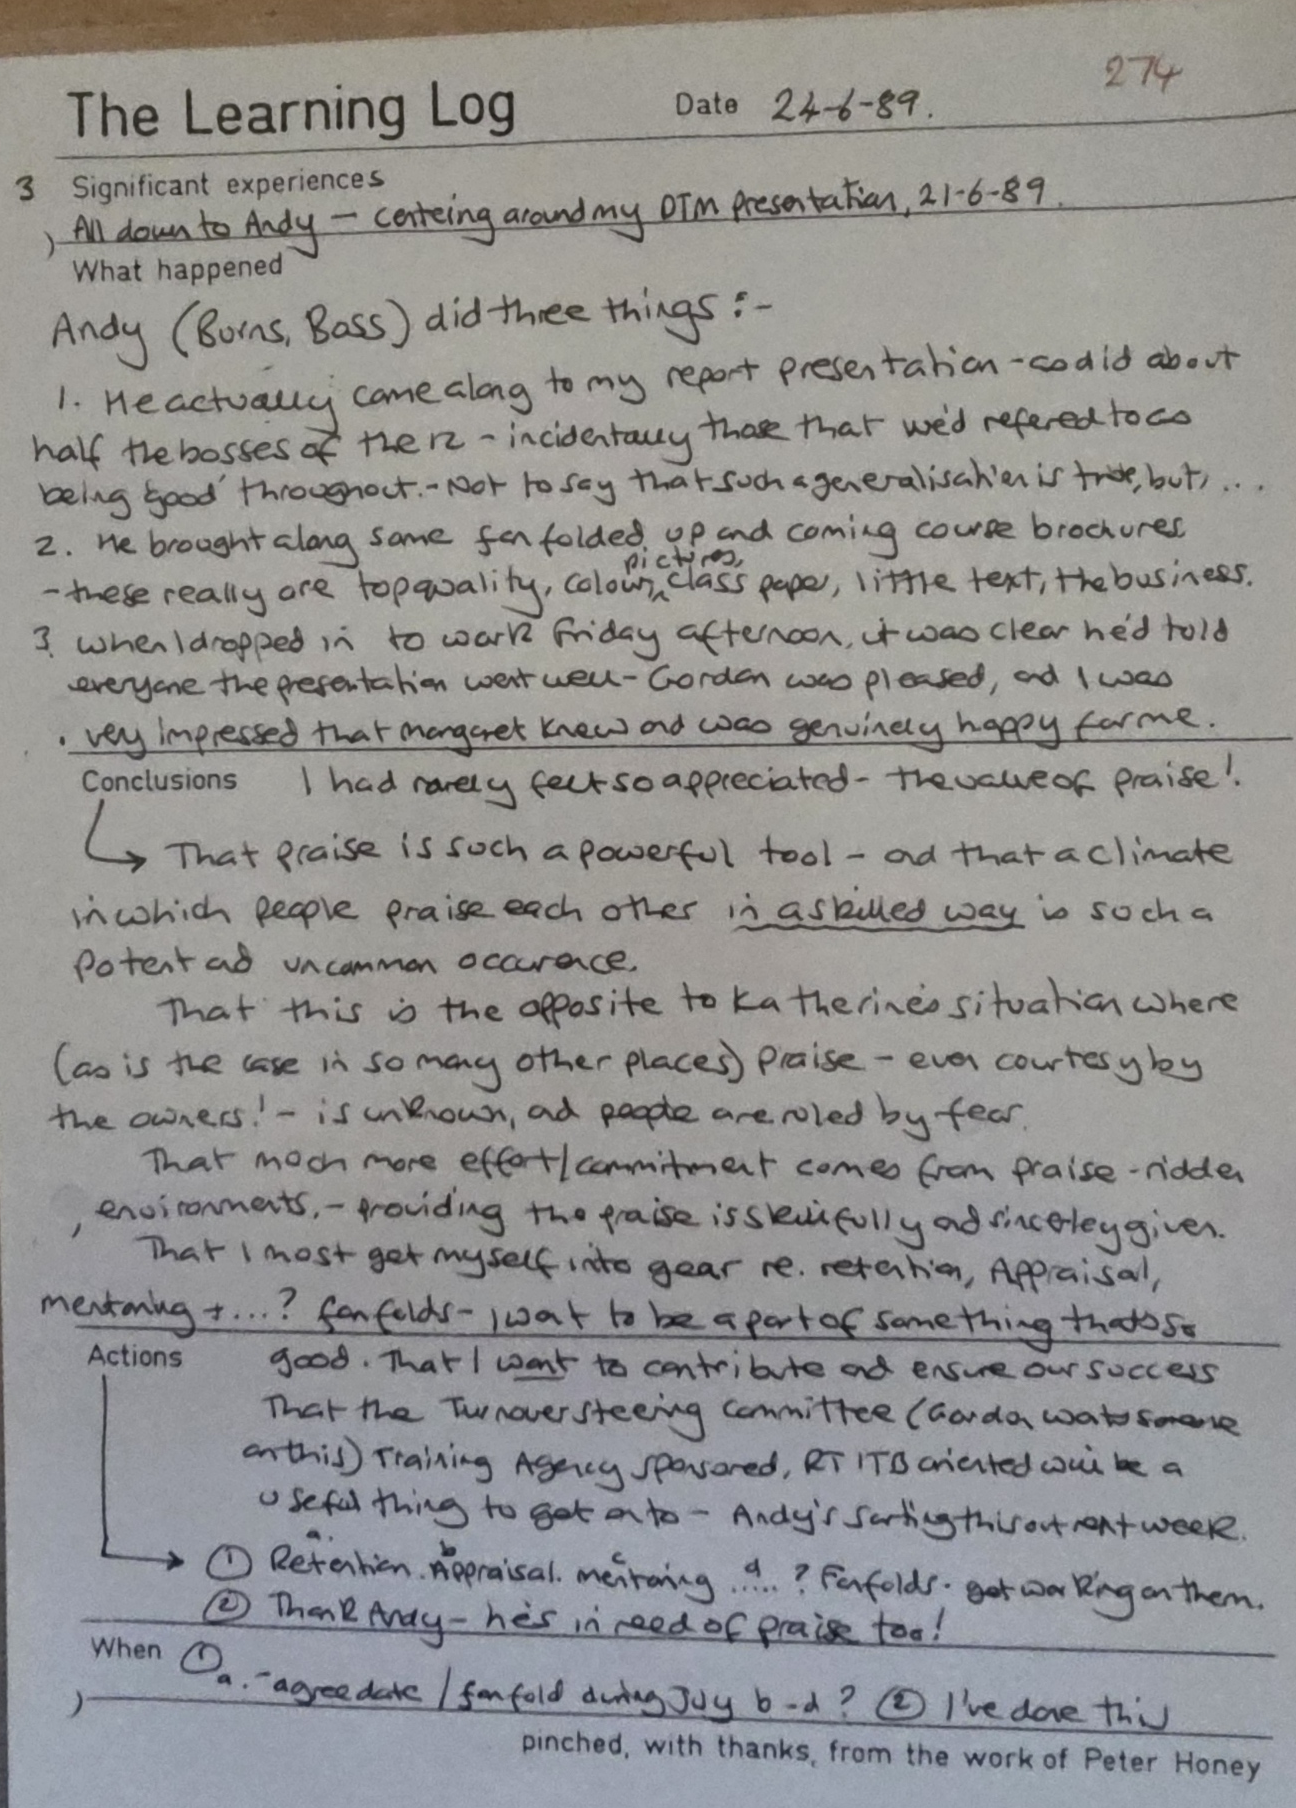 274
The Learning Log Date 24-6-89.
3 Significant experiences
All down to Andy - centeing around my DTM presentation, 21-6-89.
What happened
Andy (Burns, Boss) did three things :-
1. He actually came along to my report presentation - so did about
half the bosses of the 12 - incidentally those that we'd refered to as
being 'good' throughout. - Not to say that such a generalisation is true, but, ...
2. He brought along some fan folded up and coming course brochures
pictures,
- these really are top quality, colour ^ class paper, little text, the business.
3. when I dropped in to work Friday afternoon, it was clear he'd told
everyone the presentation went well - Gordon was pleased, and I was
very impressed that Margaret knew and was genuinely happy for me.
Conclusions I had rarely felt so appreciated - the value of praise!
That praise is such a powerful tool - and that a climate
in which people praise each other in a skilled way is such a
potent and uncommon occurence.
That this is the opposite to Katherine's situation where
(as is the case in so many other places) praise - even courtesy by
the owners! - is unknown, and people are ruled by fear.
That much more effort/commitment comes from praise-ridden
environments, - providing the praise is skillfully and sincerley given.
That I must get myself into gear re. retention, Appraisal,
mentoring + ...? fanfolds - I want to be a part of something that's so
Actions good. That I want to contribute and ensure our success
That the Turnover steering committee (Gordon wants someone
on this) Training Agency sponsored, RTITB oriented will be a
useful thing to get onto - Andy's sorting this out next week.
a. b c d
① Retention. Appraisal. mentoring .....? Fanfolds. get working on them.
② Thank Andy - he's in need of praise too!
When ① a. - agree date / fanfold during July b - d ? ② I've done this
pinched, with thanks, from the work of Peter Honey